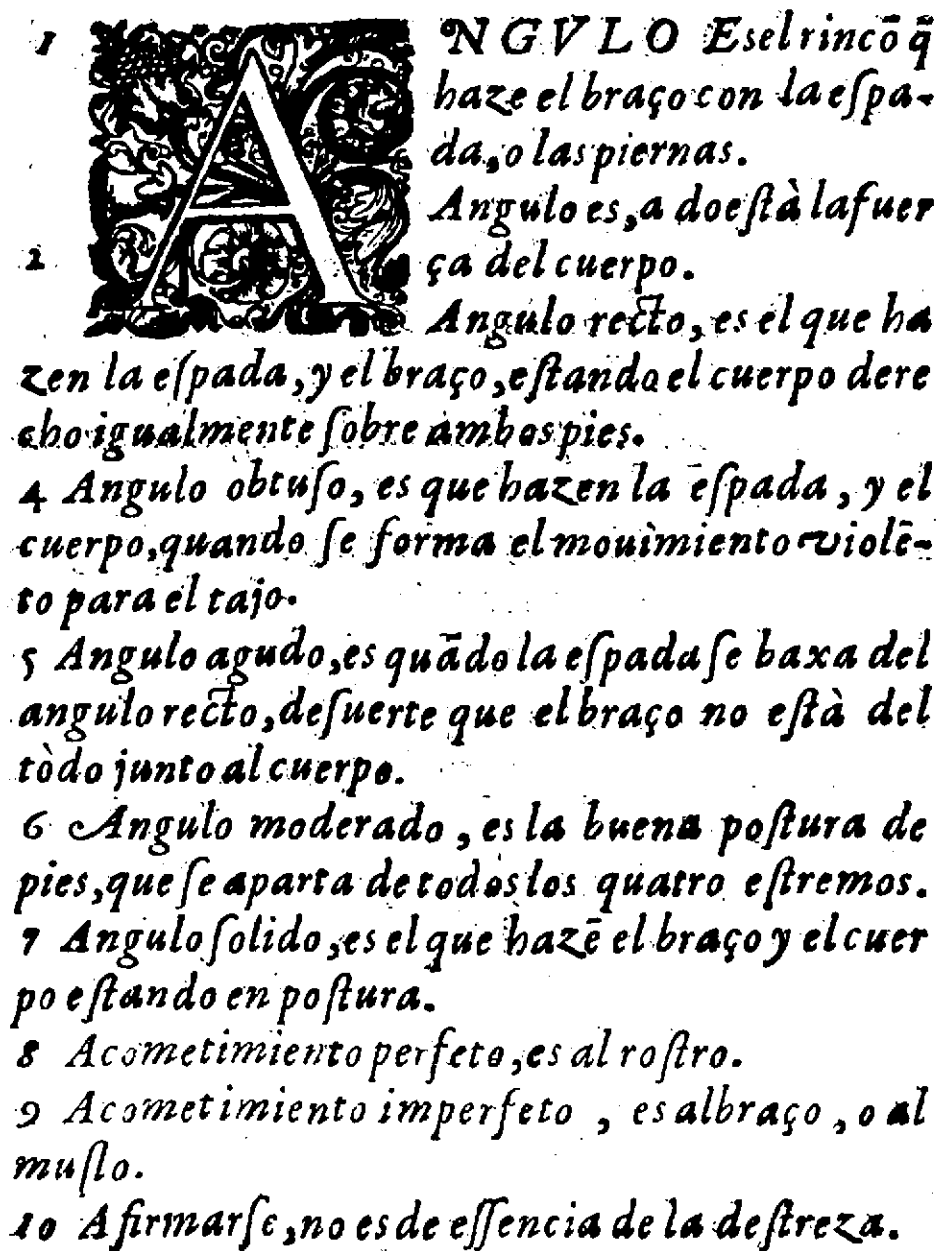 1 ANGVLO Es el rincō q̄
haze el braço con la eſpa-
da, o las piernas.
Angulo es, a do eſtà la fuer
2 ça del cuerpo.
Angulo recto, es el que ha
zen la eſpada, y el braço, eſtando el cuerpo dere
cho igualmente ſobre ambos pies.
4 Angulo obtuſo, es que hazen la eſpada, y el
cuerpo, quando ſe forma el mouimiento violē-
to para el tajo.
5 Angulo agudo, es quādo la eſpada ſe baxa del
angulo recto, de ſuerte que el braço no eſtà del
tòdo junto al cuerpo.
6 Angulo moderado, es la buena poſtura de
pies, que ſe aparta de todos los quatro eſtremos.
7 Angulo ſolido, es el que hazē el braço y el cuer
po eſtando en poſtura.
8 Acometimiento perfeto, es al roſtro.
9 Acometimiento imperfeto, es al braço, o al
muſlo.
10 Afirmarſe, no es de eſſencia de la deſtreza.